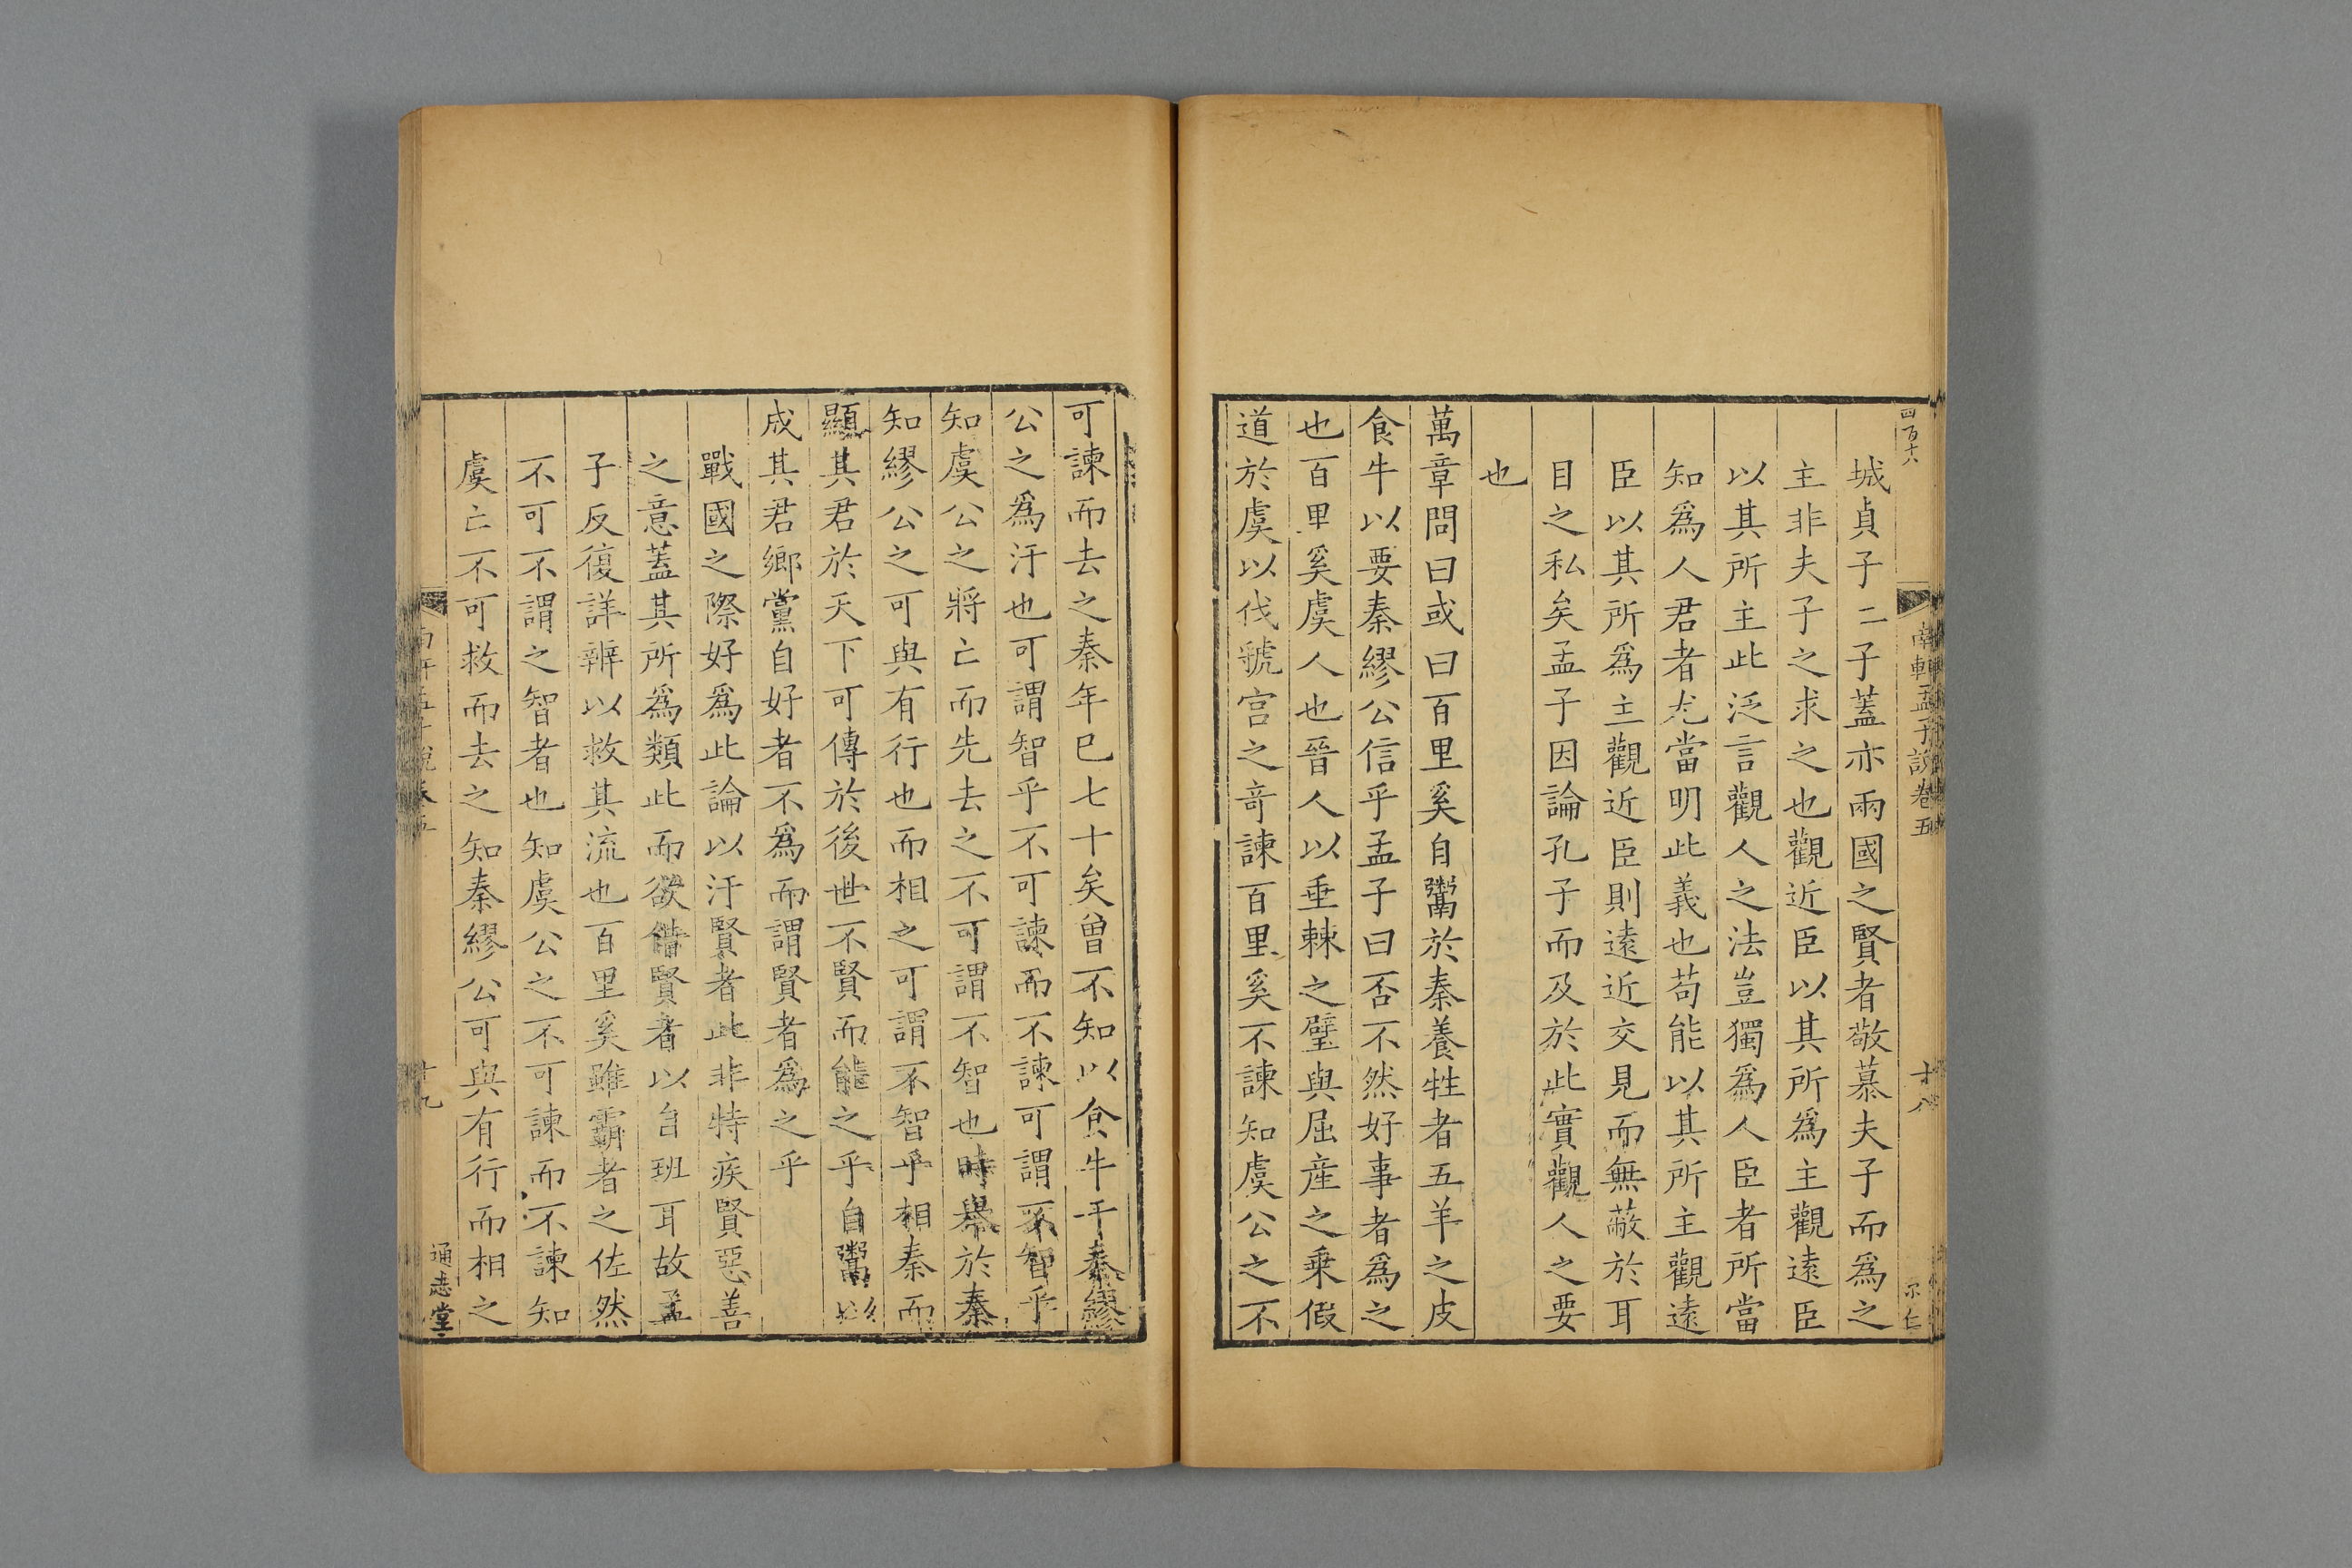 四百十六
南軒孟子說卷五
十八
尔仁
城貞子二子蓋亦兩國之賢者敬慕夫子而爲之
主非夫子之求之也觀近臣以其所爲主觀遠臣
以其所主此泛言觀人之法豈獨爲人臣者所當
知爲人君者尤當明此義也苟能以其所主觀遠
臣以其所爲主觀近臣則遠近交見而無蔽於耳
目之私矣孟子因論孔子而及於此實觀人之要
也
萬章問曰或曰百里奚自鬻於秦養牲者五羊之皮
食牛以要秦繆公信乎孟子曰否不然好事者爲之
也百里奚虞人也晉人以垂棘之璧與屈産之乗假
道於虞以伐虢宫之竒諫百里奚不諫知虞公之不
可諫而去之秦年巳七十矣曽不知以食牛干秦繆
公之爲汙也可謂智乎不可諫而不諫可謂不智乎
知虞公之將亡而先去之不可謂不智也時舉於秦
知繆公之可與有行也而相之可謂不智乎相秦而
顯其君於天下可傳於後世不賢而能之乎自鬻以
成其君鄉黨自好者不爲而謂賢者爲之乎
戰國之際好爲此論以汙賢者此非特疾賢惡善
之意蓋其所爲類此而欲借賢者以自班耳故孟
子反復詳辨以救其流也百里奚雖霸者之佐然
不可不謂之智者也知虞公之不可諫而不諫知
虞亡不可救而去之知秦繆公可與有行而相之
十九
通志堂